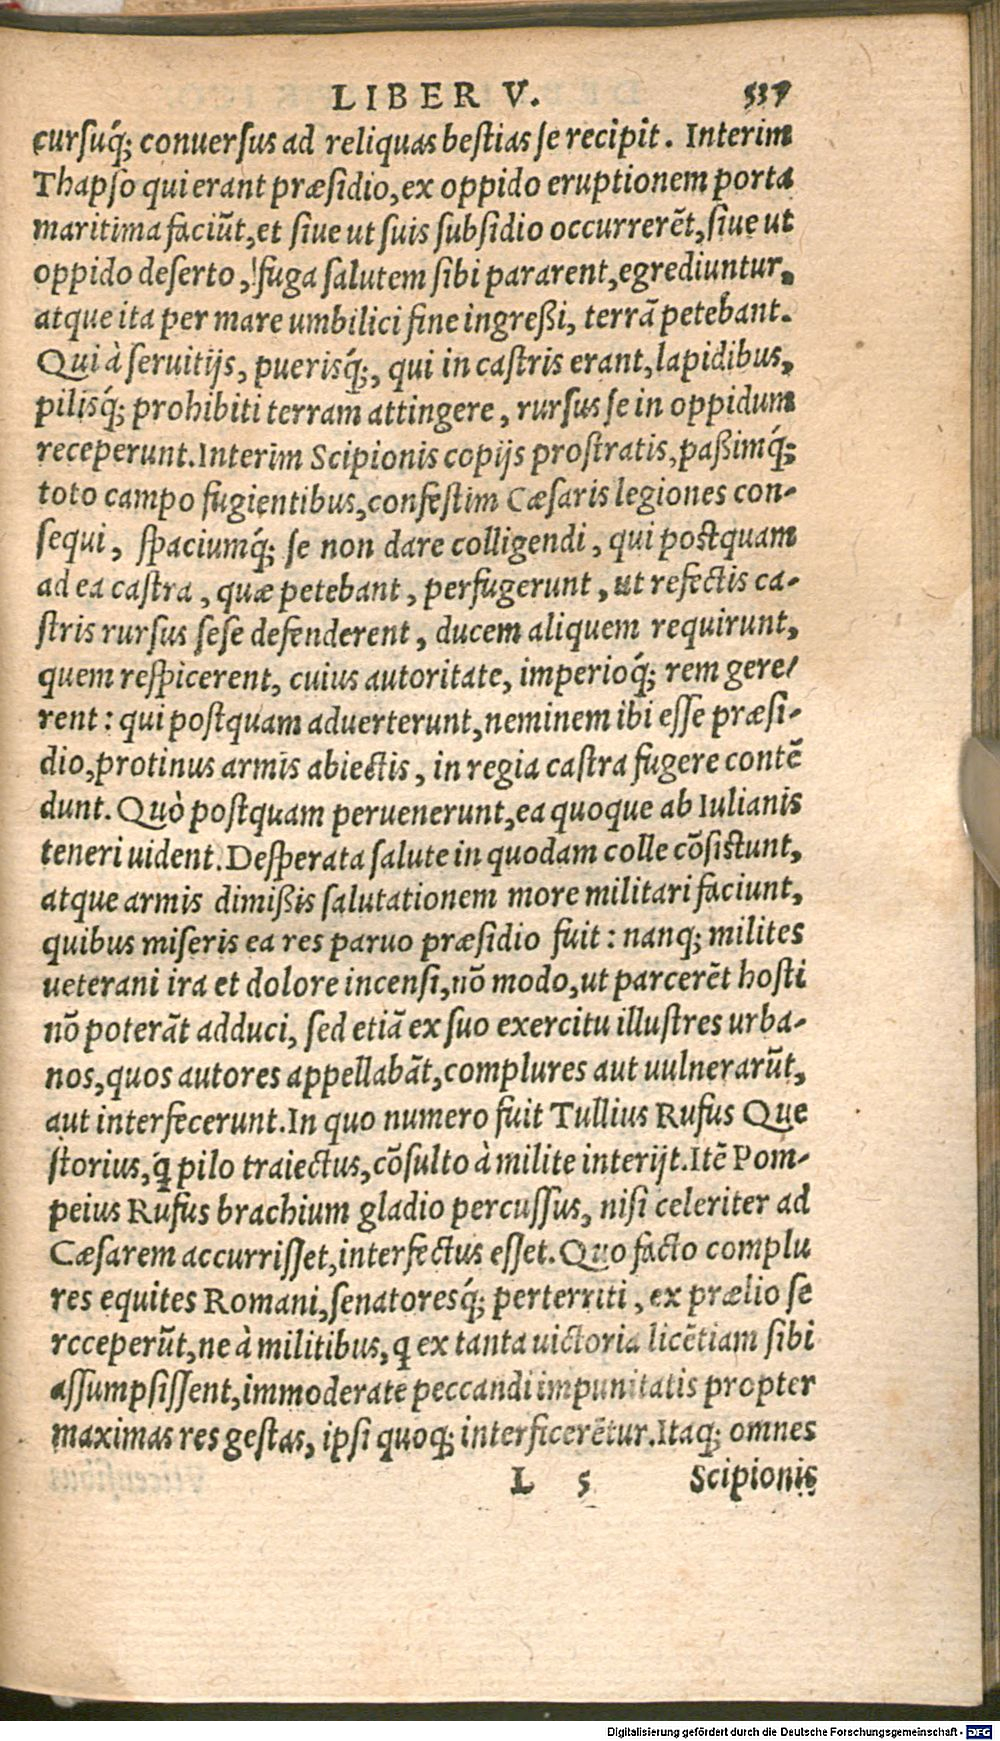 LIBER V. 537
cursuq́; conuersus ad reliquas bestias se recipit. Interim
Thapso qui erant præsidio, ex oppido eruptionem porta
maritima faciũt, et siue ut suis subsidio occurrerẽt, siue ut
oppido deserto, fuga salutem sibi pararent, egrediuntur,
atque ita per mare umbilici fine ingreßi, terrã petebant.
Qui à seruitijs, puerisq́;, qui in castris erant, lapidibus,
pilisq́; prohibiti terram attingere, rursus se in oppidum
receperunt. Interim Scipionis copijs prostratis, paßimq́;
toto campo fugientibus, confestim Cæsaris legiones con-
sequi, spaciumq́; se non dare colligendi, qui postquam
ad ea castra, quæ petebant, perfugerunt, ut refectis ca-
stris rursus sese defenderent, ducem aliquem requirunt,
quem respicerent, cuius autoritate, imperioq́; rem gere/
rent: qui postquam aduerterunt, neminem ibi esse præsi-
dio, protinus armis abiectis, in regia castra fugere contẽ
dunt. Quò postquam peruenerunt, ea quoque ab Iulianis
teneri uident. Desperata salute in quodam colle cõsistunt,
atque armis dimißis salutationem more militari faciunt,
quibus miseris ea res paruo præsidio fuit: nanq; milites
ueterani ira et dolore incensi, nõ modo, ut parcerẽt hosti
nõ poterãt adduci, sed etiã ex suo exercitu illustres urba-
nos, quos autores appellabãt, complures aut uulnerarũt,
aut interfecerunt. In quo numero fuit Tullius Rufus Que
storius, q́ pilo traiectus, cõsulto à milite interijt. Itẽ Pom-
peius Rufus brachium gladio percussus, nisi celeriter ad
Cæsarem accurrisset, interfectus esset. Quo facto complu
res equites Romani, senatoresq́; perterriti, ex prælio se
rcceperũt, ne à militibus, q ex tanta uictoria licẽtiam sibi
assumpsissent, immoderate peccandi impunitatis propter
maximas res gestas, ipsi quoq; interficerẽtur. Itaq; omnes
L 5 Scipionis
Digitalisierung gefördert durch die Deutsche Forschungsgemeinschaft - DFG